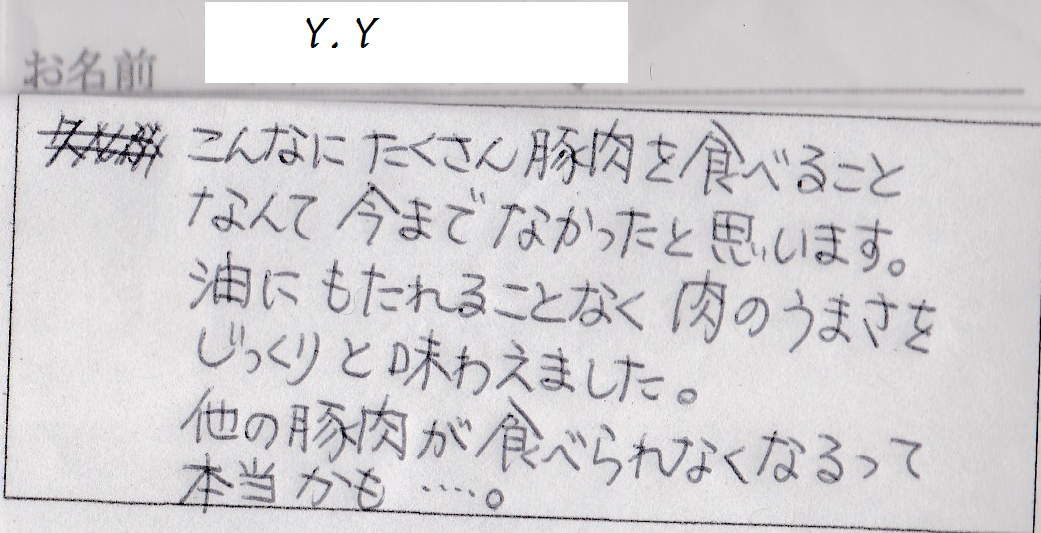 Y.Y
お名前
こんなにたくさん豚肉を食べること
なんて今までなかったと思います。
油にもたれることなく肉のうまさを
じっくりと味わえました。
他の豚肉が食べられなくなるって
本当かも……。